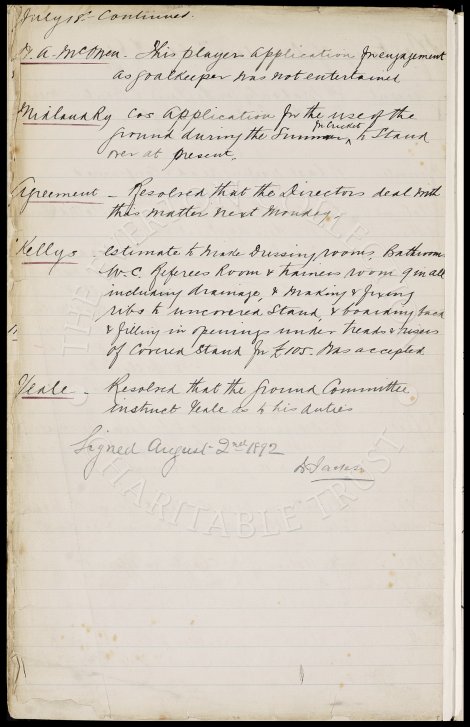 July 18. Continued.
M. A. McOwen. This players application for engagement
as goalkeeper was not entertained
Midland Ry Cos application for the use of the
for Cricket
ground during the Summer to Stand
over at present.
Agreement - Resolved that the Directors deal with
this matter next Monday.
Kellys - estimate to make Dressing rooms, Bathroom
W.C. Referees Room & trainers room 9 in all
including drainage, & making & fixing
ribs to uncovered Stand, & boarding back
& filling in openings under treads & risers
of Covered Stand for £105. was accepted
Veale - Resolved that the Ground Committee
instruct Veale as to his duties
Signed August 2nd 1892
D Jackson
THE EVERTON COLLECTION
CHARITABLE TRUST